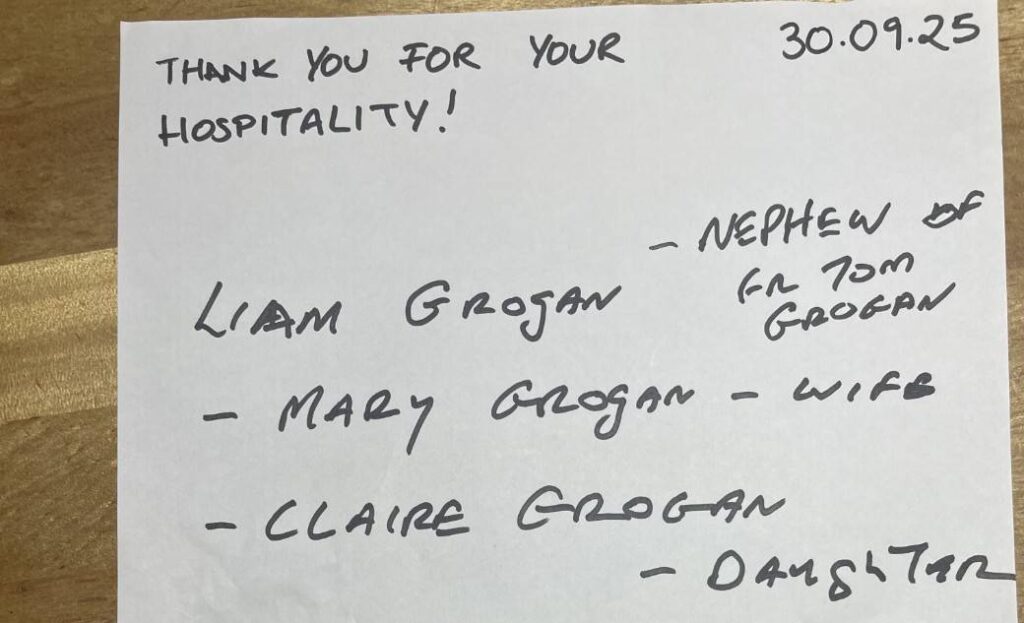 THANK YOU FOR YOUR
HOSPITALITY!
30.09.25
LIAM GROGAN
- NEPHEW OF
FR TOM
GROGAN
- MARY GROGAN - WIFE
- CLAIRE GROGAN
- DAUGHTER